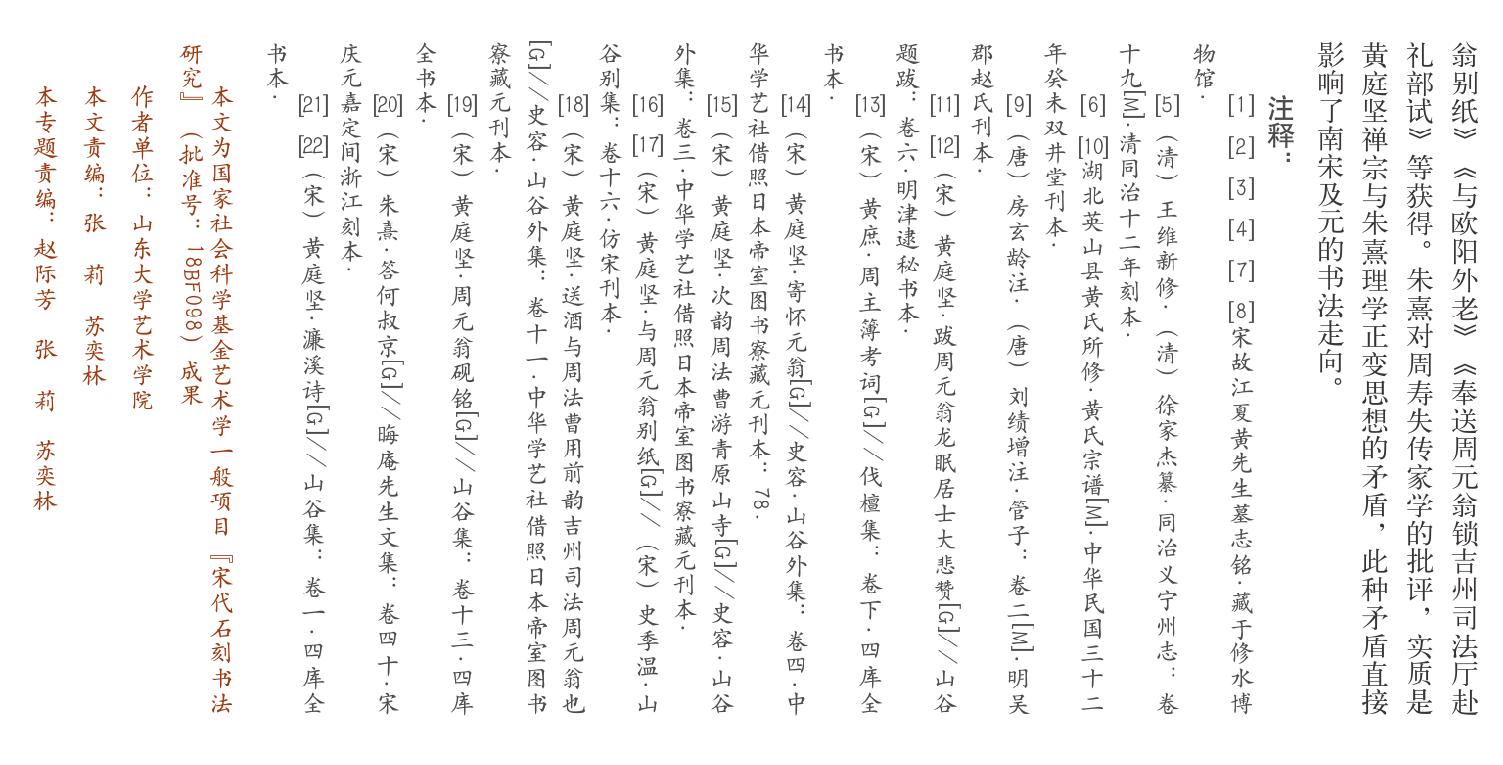 翁别纸》《与欧阳外老》《奉送周元翁锁吉州司法厅赴
礼部试》等获得。朱熹对周寿失传家学的批评，实质是
黄庭坚禅宗与朱熹理学正变思想的矛盾，此种矛盾直接
影响了南宋及元的书法走向。
注释：
[1] [2] [3] [4] [7] [8]宋故江夏黄先生墓志铭.藏于修水博
物馆.
[5]（清）王维新修.（清）徐家杰纂.同治义宁州志：卷
十九[M].清同治十二年刻本.
[6] [10]湖北英山县黄氏所修.黄氏宗谱[M].中华民国三十二
年癸未双井堂刊本.
[9]（唐）房玄龄注.（唐）刘绩增注.管子：卷二[M].明吴
郡赵氏刊本.
[11] [12]（宋）黄庭坚.跋周元翁龙眠居士大悲赞[G]//山谷
题跋：卷六.明津逮秘书本.
[13]（宋）黄庶.周主簿考词[G]//伐檀集：卷下.四库全
书本.
[14]（宋）黄庭坚.寄怀元翁[G]//史容.山谷外集：卷四.中
华学艺社借照日本帝室图书寮藏元刊本：78.
[15]（宋）黄庭坚.次韵周法曹游青原山寺[G]//史容.山谷
外集：卷三.中华学艺社借照日本帝室图书寮藏元刊本.
[16] [17]（宋）黄庭坚.与周元翁别纸[G]//（宋）史季温.山
谷别集：卷十六.仿宋刊本.
[18]（宋）黄庭坚.送酒与周法曹用前韵吉州司法周元翁也
[G]//史容.山谷外集：卷十一.中华学艺社借照日本帝室图书
寮藏元刊本.
[19]（宋）黄庭坚.周元翁砚铭[G]//山谷集：卷十三.四库
全书本.
[20]（宋）朱熹.答何叔京[G]//晦庵先生文集：卷四十.宋
庆元嘉定间浙江刻本.
[21] [22]（宋）黄庭坚.濂溪诗[G]//山谷集：卷一.四库全
书本.
本文为国家社会科学基金艺术学一般项目『宋代石刻书法
研究』（批准号：18BF098）成果
作者单位：山东大学艺术学院
本文责编：张 莉 苏奕林
本专题责编：赵际芳 张 莉 苏奕林